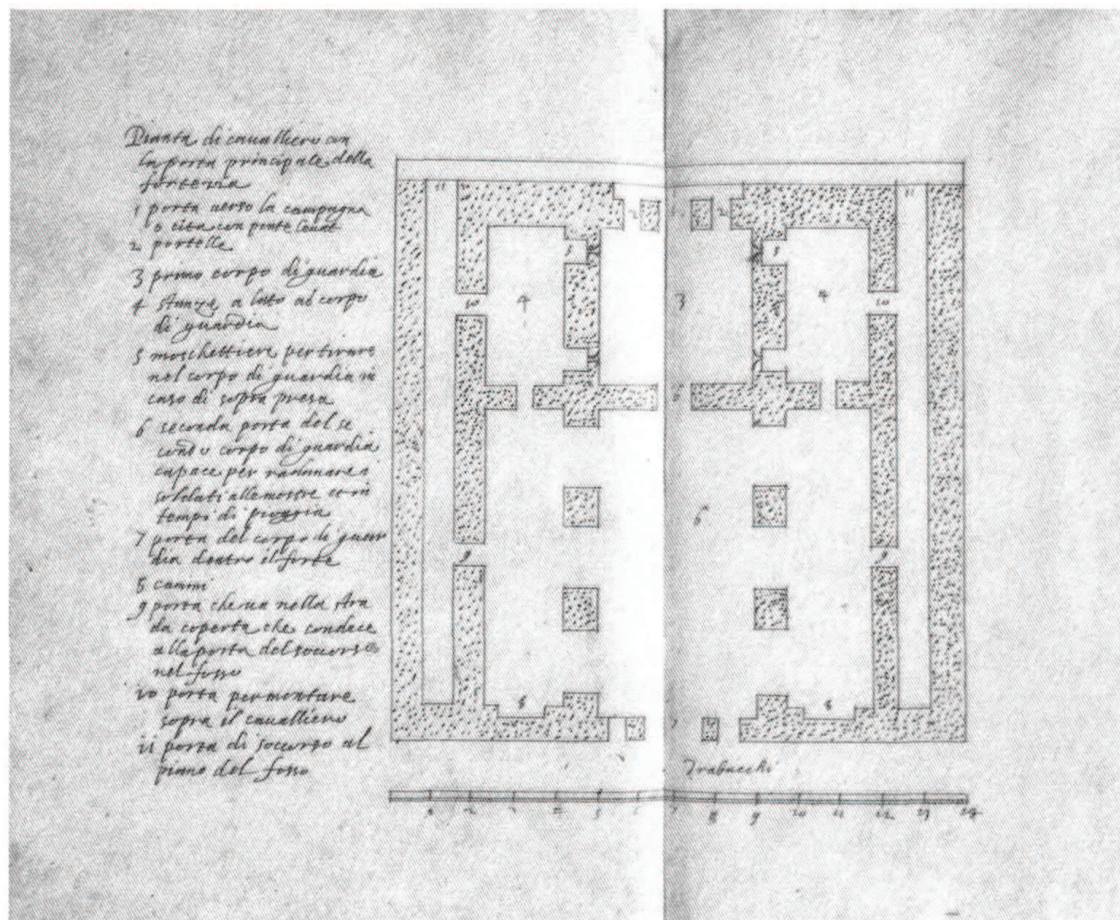 Pianta di cavalliero con
la porta principale della
fortezza
1 porta verso la campagna
o cita con ponte levat
2 portelle
3 primo corpo di guardia
4 stanze a lato al corpo
di guardia
5 moschettiere per tirare
nel corpo di guardia in
caso di sopra presa
6 seconda porta del se
condo corpo di guardia
capace per radunare i
soldati alle mostre et in
tempi di pioggia
7 porta del corpo di guar
dia dentro il forte
8 camini
9 porta che va nella stra
da coperta che conduce
alla porta del soccorso
nel fosso
10 porta per montare
sopra il cavalliero
11 porta di soccorso al
piano del fosso
11 11
2 1 2
5 5
10 4 3 4 10
6
6
9 9
8 7 8
Trabucchi
1 2 3 4 5 6 7 8 9 10 11 12 13 14